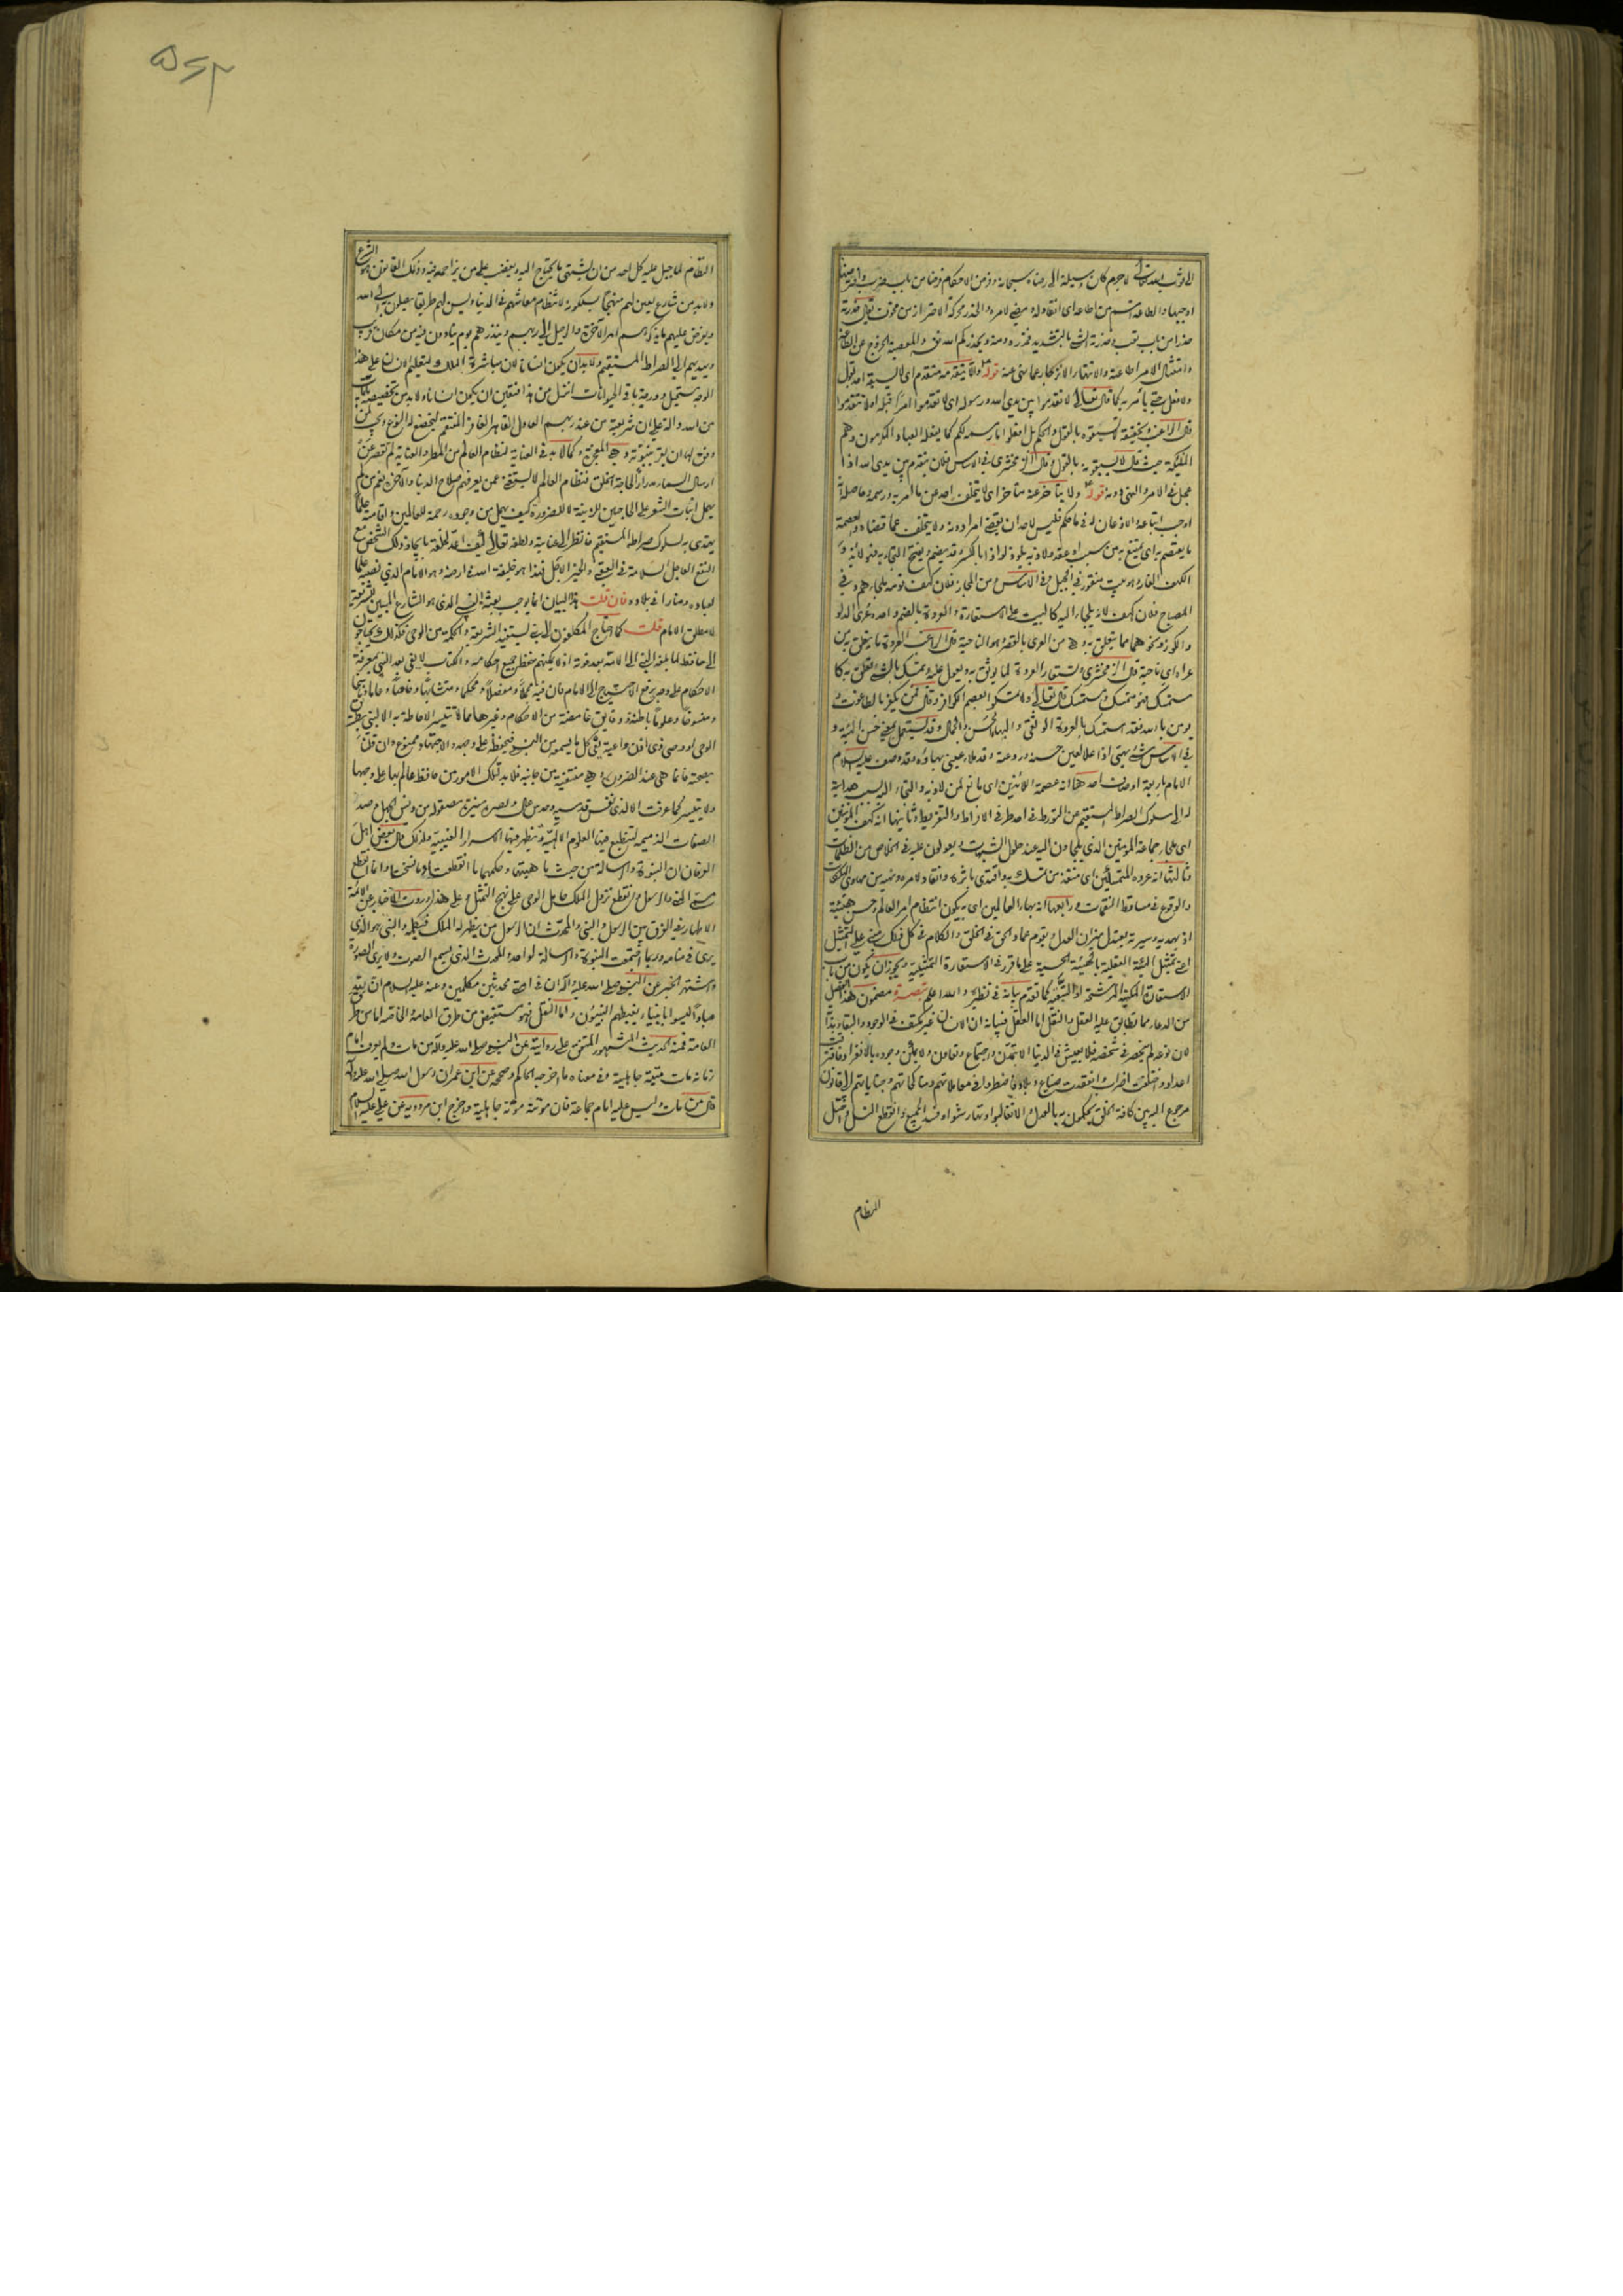 الى ثواب الله تعالى لا جرم كان وسيلة الى رضاه سبحانه وفرض الاحكام فرضا من باب ضرب
اوجبها والطاعة اسم من اطاعه اى انقاد له ومضى لامره والحذر محركة الاحتراز من مخوف يقال حذرته
حذرا من باب تعب وحذرته الشىء بالتشديد فحذره ومنه ويحذركم الله نفسه والمعصية الخروج عن الطاعة
وامتثال الامر اطاعته والانتهاء الانزجار عما نهى عنه قوله ولا يتقدمه متقدم اى لا يسبقه احد بقول
ولا فعل حتى يأمر به كما قال تعالى لا تقدموا بين يدى الله ورسوله اى لا تقدموا امرا قبله او لا تتقدموا
قال الراغب وتحقيقه لا تسبقوه بالقول والحكم بل افعلوا ما رسمه لكم كما يفعله العباد المكرمون وهم
الملئكة حيث قال لا يسبقونه بالقول وقال الزمخشرى فى الاساس فلان يتقدم بين يدى الله اذا
عجل فى الامر والنهى دونه قوله ولا يتأخر عنه متأخر اى لا يتخلف احد عن ما امر به ورسمه وحاصله
اوجب اتباعه والاذعان له فى ما حكم فليس لاحد ان يقضى امرا دونه ولا يتخلف عما قضاه والعصمة
ما يعتصم به اى يمتنع به من سبب او عقد ولاذ به يلوذ لواذا بالكسر وقد يضم
الكهف الغار وهو بيت منقور فى الجبل وفى الاساس ومن المجاز فلان كهف قومه يلجاون اليه وفى
المصباح فلان كهف لانه يلجاء اليه كالبيت على الاستعارة والعروة بالضم واحدة عرى الدلو
والكوز ونحوهما مما يتعلق به وهى من العرى بالقصر وهو الناحية قال الراغب العروة ما يتعلق به من
عراه اى ناحيته قال الزمخشرى وتستعار العروة لما يوثق به ويعول عليه وتمسك بالشىء تعلق به كا
ستمسك فهو متمسك ومستمسك قال تعالى ولا تمسكوا بعصم الكوافر وقال فمن يكفر بالطاغوت و
يومن بالله فقد استمسك بالعروة الوثقى والبهاء الحسن والجمال وقد يستعمل بمعنى حسن الهيئة و
فى الاساس شىء بهى اذا علا العين حسنه وروعته وقد ملاء عينى بهاؤه وقد وصف عليه السلام
الامام باربعة اوصاف احدها انه عصمة اللائذين اى مانع لمن لاذ به والتجاء اليه
له الى سلوك الصراط المستقيم من التورط فى احد طرفى الافراط والتفريط وثانيها انه كهف المؤمنين
اى ملجاء جماعة المومنين الذى يلجاون اليه عند حلول الشبهات ويعولون عليه فى الخلاص من الظلمات
وثالثها انه عروة المتمسكين اى منقذ من تمسك به واقتدى باثره وانقاد لامره ونهيه من مهاوى الهلكات
والوقوع فى مساقط النقمات ورابعها انه بهاء العالمين اى به يكون انتظام امر العالم وحسن هيئته
اذ بهديه وسيرته يعتدل ميزان العدل ويقوم عماد الحق فى الخلق والكلام فى كل ذلك مبنى على التمثيل
اعنى تمثيل الهيئة العقلية بالهيئة الحسية على ما قرر فى الاستعارة التمثيلية ويجوز ان يكون من باب
الاستعارة المكنية المرشحة او التبعية كما تقدم بيانه فى نظيره والله اعلم تبصرة مضمون هذا الفصل
من الدعاء مما تطابق عليه العقل والنقل اما العقل فبيانه ان الانسان غير مكتف فى الوجود والبقاء بذاته
لان نوعه لم ينحصر فى شخصه فلا يعيش فى الدنيا الا بتمدن واجتماع وتعاون ولا يمكن وجوده بالانفراد فافترقت
اعداد واختلفت احزاب وانعقدت ضياع وبلاد فاضطروا فى معاملاتهم ومناكحاتهم وجناياتهم الى قانون
مرجوع اليه بين كافة الخلق يحكمون به بالعدل والا تغالبوا وتهارشوا وفسد الجميع وانقطع النسل واختل
النظام
النظام لما جبل عليه كل احد من ان يشتهى ما يحتاج اليه ويغضب على من يزاحمه فيه وذلك القانون هو الشرع
ولا بد من شارع يعين لهم منهجا يسلكونه لانتظام معاشهم فى الدنيا ويسن لهم طريقا يصلون به الى الله
ويفرض عليهم ما يذكرهم امر الآخرة والرحيل الى ربهم وينذرهم بيوم ينادون فيه من مكان قريب
ويهديهم الى الصراط المستقيم ولا بد ان يكون انسانا لان مباشرة الملك لتعليم الانسان على هذا
الوجه مستحيل ودرجة باقى الحيوانات انزل من هذا فتعين ان يكون انسانا ولا بد من تخصيصه بايات
من الله دالة على ان شريعته من عند ربهم العادل القاهر الغافر المنتقم ليخضع له النوع ويجب لمن
وفق لها ان يقر بنبوته وهى المعجزة وكما لا بد فى العناية لنظام العالم من المطر والعناية لم تقصر عن
ارسال السماء مدرارا لحاجة الخلق فنظام العالم لا يستغنى عمن يعرفهم صلاح الدنيا والآخرة نعم من لم
يهمل انبات الشعر على الحاجبين للزينة لا للضرورة كيف يهمل من وجوده رحمة للعالمين واقامته علما
يهتدى به لسلوك صراطه المستقيم فانظر الى عنايته ولطفه تعالى كيف اعد لخلقه بايجاد ذلك الشخص مع
النفع العاجل السلامة فى العقبى والخير الآجل فهذا هو خليفة الله فى ارضه وهو الامام الذى نصبه علما
لعباده ومنارا فى بلاده فان قلت هذا البيان انما يوجب بعثة النبى الذى هو الشارع المبين للشريعة
لا مطلق الامام قلت كما احتاج المكلفون الى نبى يستفيد الشريعة والحكمة من الوحى فكذلك يحتاجون
الى حافظ لما بلغه النبى الى الامة بعد فوته اذ لا يمكنهم حفظ جميع احكامه والكتاب لا يفى بعد النبى بمعرفة
الاحكام على وجه يرفع الاحتياج الى الامام فان فيه مجملا ومفصلا ومحكما ومتشابها وخاصا وعاما وناسخا
ومنسوخا وعلوما باطنة ودقايق غامضة من الاحكام وغيرها مما لا تتيسر الاحاطة به الا لنبى
الوحى او وصى ذى اذن واعية يعى كل ما يسمع من النبى فيحفظه على وجهه والاجتهاد ممنوع وان قلنا
بصحته فانما هى عند الضرورة وهى منتفية من جانبه فلا بد لتلك الامور من حافظ عالم بها على وجهها
ولا يتيسر كما عرفت الا لذى نفس قدسية وحدس عال وبصيرة منيرة مصقولة من دنس الجهل وصداء
الصفات الذميمة لتنطبع فيها العلوم الالهية وتظهر فيها الاسرار الغيبية ولذلك قال بعض اهل
العرفان ان النبوة والرسالة من حيث ماهيتهما وحكمهما ما انقطعت وما نسخت وانما انقطع
مسمى النبى والرسول وانقطع نزول الملك حامل الوحى على نهج التمثل وعلى هذا وردت الاخبار عن الائمة
الاطهار فى الفرق بين الرسول والنبى والمحدث ان الرسول من يظهر له الملك فيكلمه والنبى هو الذى
يرى فى منامه وربما اجتمعت النبوة والرسالة لواحد والمحدث الذى يسمع الصوت ولا يرى الصورة
واشتهر الخبر عن النبى صلى الله عليه وآله ان فى امتى محدثين مكلمين وعنه عليه السلام ان لله
عبادا ليسوا بانبياء يغبطهم النبيون واما النقل فهو مستفيض من طرق العامة والخاصة اما من طرق
العامة فمنه الحديث المشهور المتفق على روايته عن النبى صلى الله عليه وآله من مات ولم يعرف امام
زمانه مات ميتة جاهلية وفى معناه ما اخرجه الحاكم وصححه عن ابن عمر ان رسول الله صلى الله عليه وآله
قال من مات وليس عليه امام جماعة فان موتته موتة جاهلية واخرج ابن مردويه عن على عليه السلام